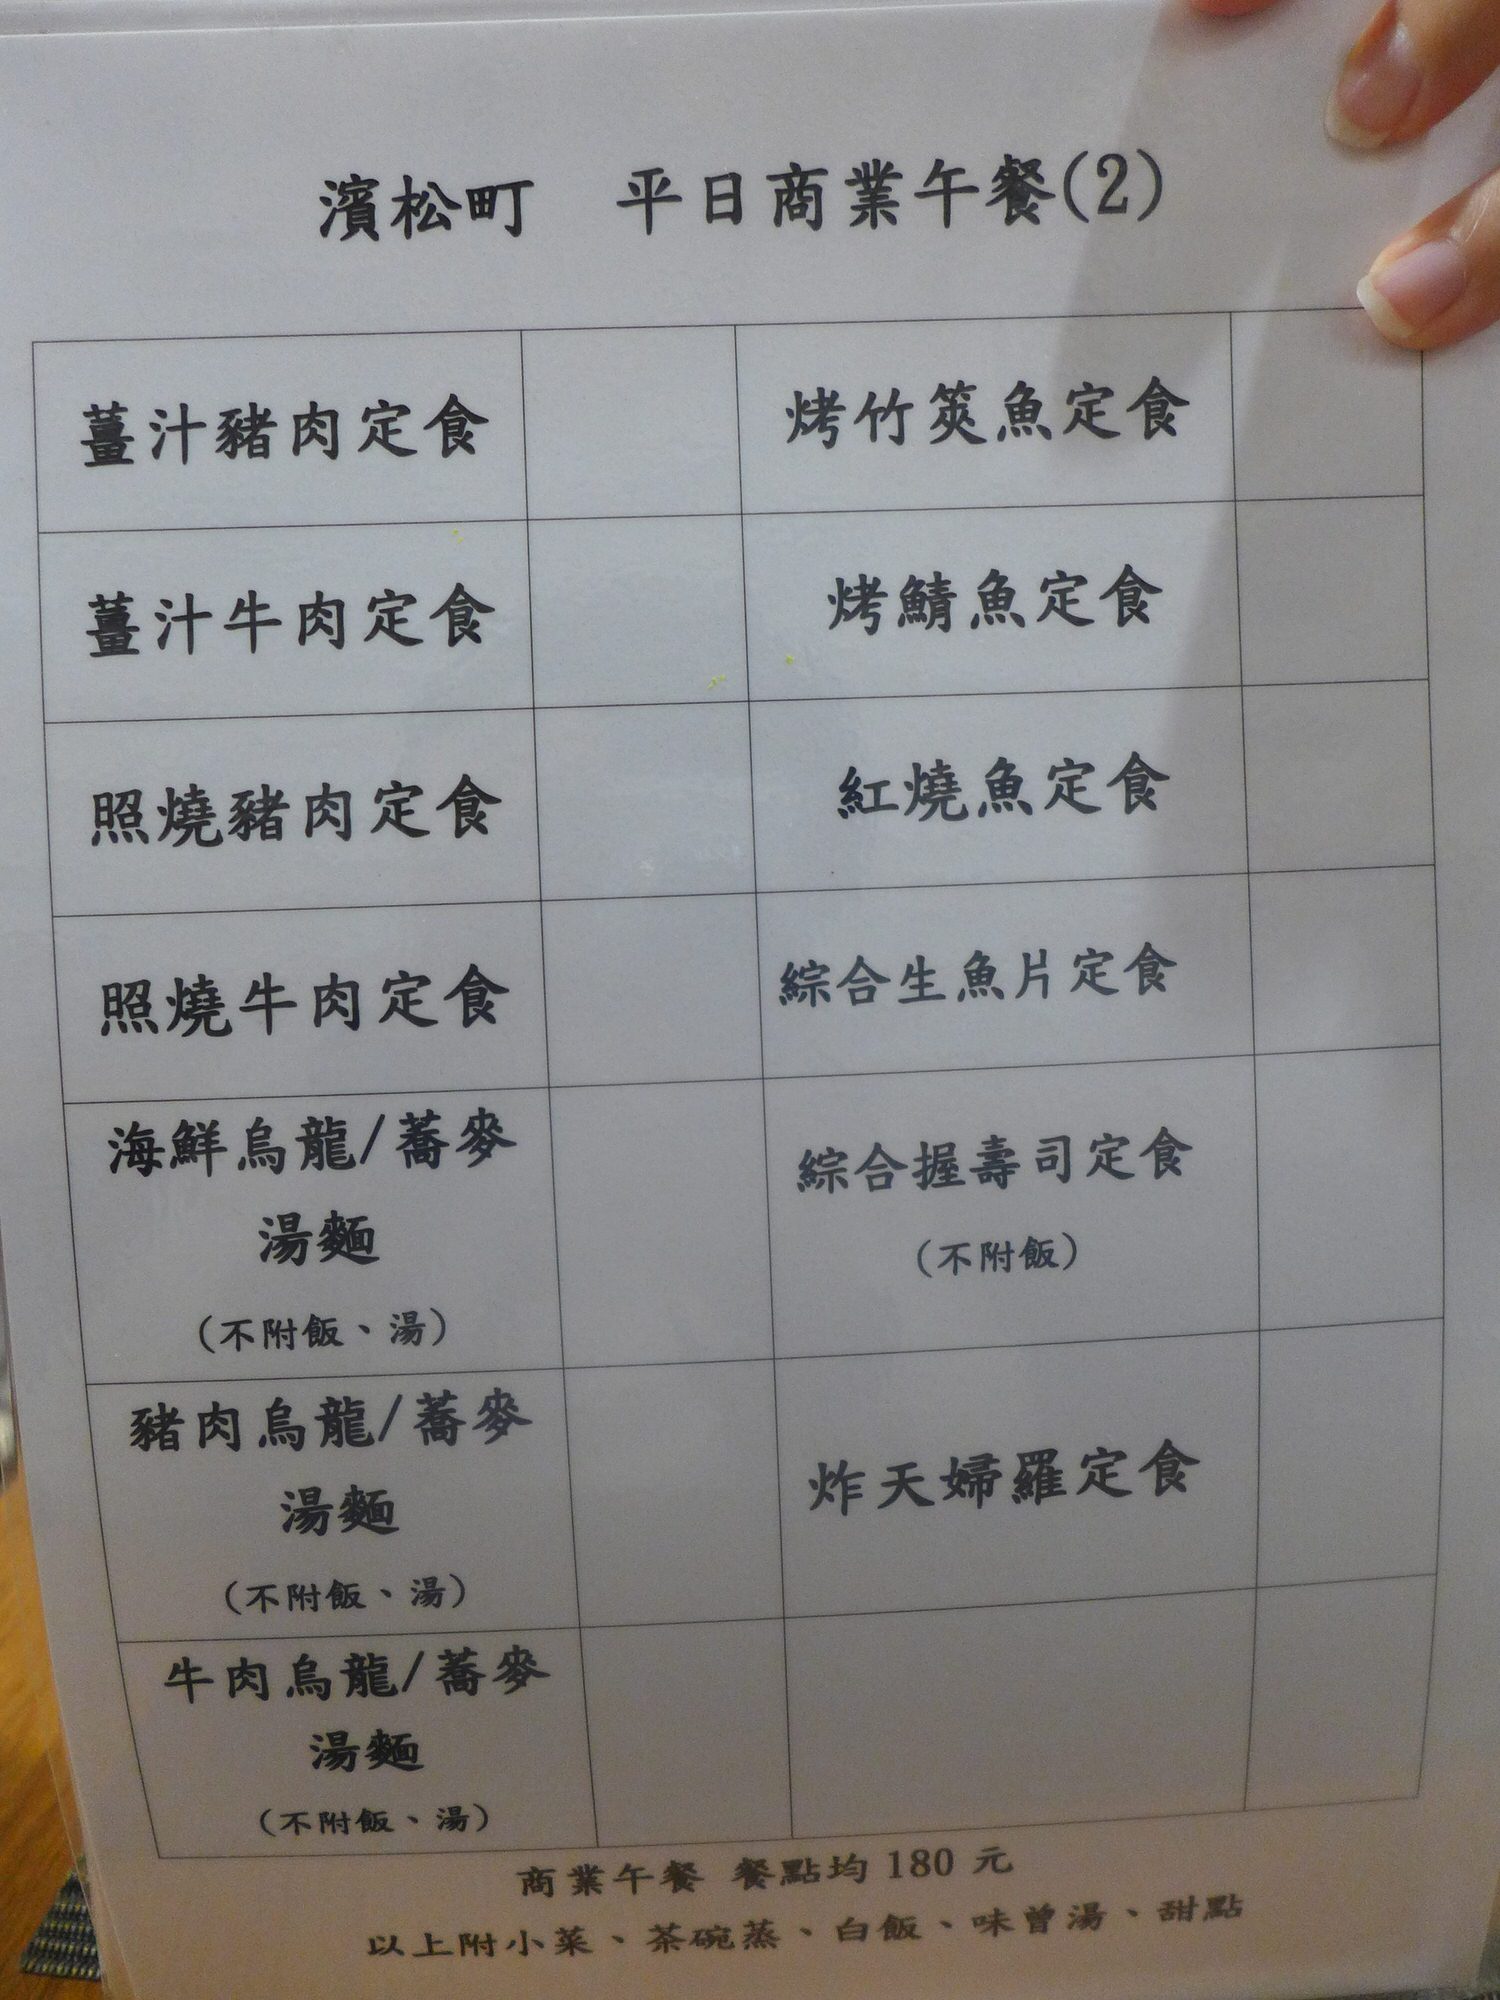 濱松町　平日商業午餐(2)
薑汁豬肉定食
烤竹筴魚定食
薑汁牛肉定食
烤鯖魚定食
照燒豬肉定食
紅燒魚定食
照燒牛肉定食
綜合生魚片定食
海鮮烏龍/蕎麥
湯麵
(不附飯、湯)
綜合握壽司定食
(不附飯)
豬肉烏龍/蕎麥
湯麵
(不附飯、湯)
炸天婦羅定食
牛肉烏龍/蕎麥
湯麵
(不附飯、湯)
商業午餐 餐點均 180 元
以上附小菜、茶碗蒸、白飯、味曾湯、甜點